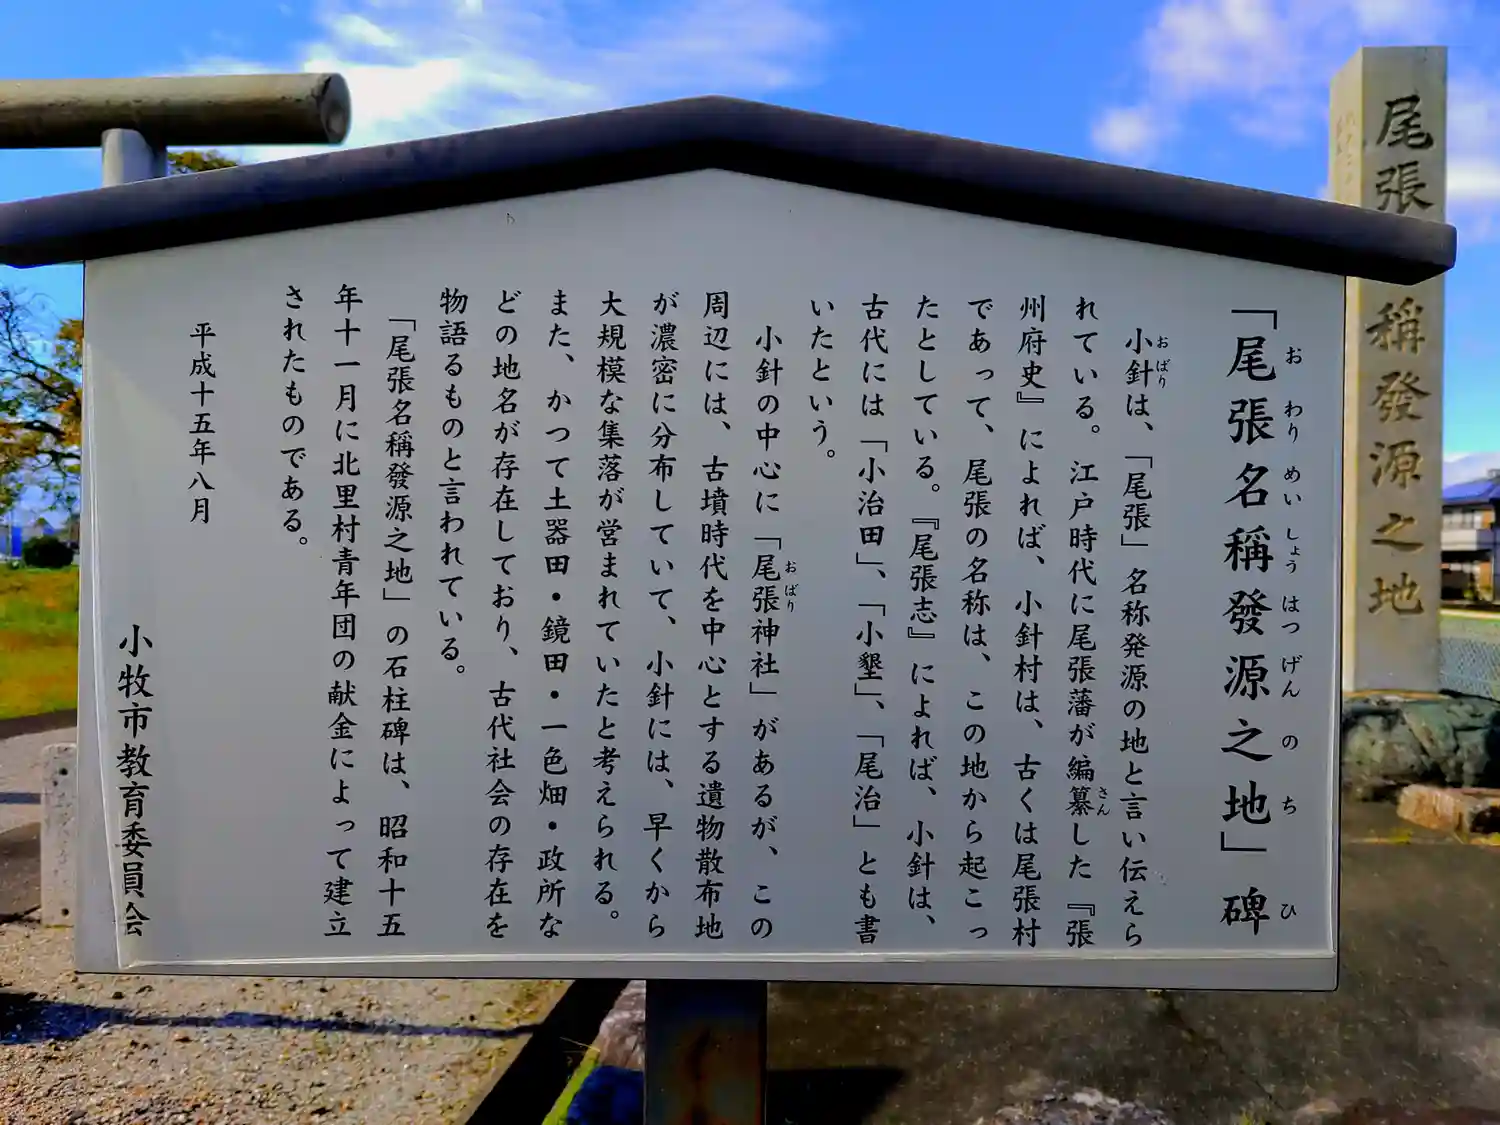 「尾張名稱發源之地」碑
おわりめいしょうはつげんのちひ
小針は、「尾張」名称発源の地と言い伝えら
おばり
れている。江戸時代に尾張藩が編纂した『張
さん
州府史』によれば、小針村は、古くは尾張村
であって、尾張の名称は、この地から起こっ
たとしている。『尾張志』によれば、小針は、
古代には「小治田」、「小墾」、「尾治」とも書
いたという。
小針の中心に「尾張神社」があるが、この
おばり
周辺には、古墳時代を中心とする遺物散布地
が濃密に分布していて、小針には、早くから
大規模な集落が営まれていたと考えられる。
また、かつて土器田・鏡田・一色畑・政所な
どの地名が存在しており、古代社会の存在を
物語るものと言われている。
「尾張名稱發源之地」の石柱碑は、昭和十五
年十一月に北里村青年団の献金によって建立
されたものである。
平成十五年八月
小牧市教育委員会
尾張
稱發源之地